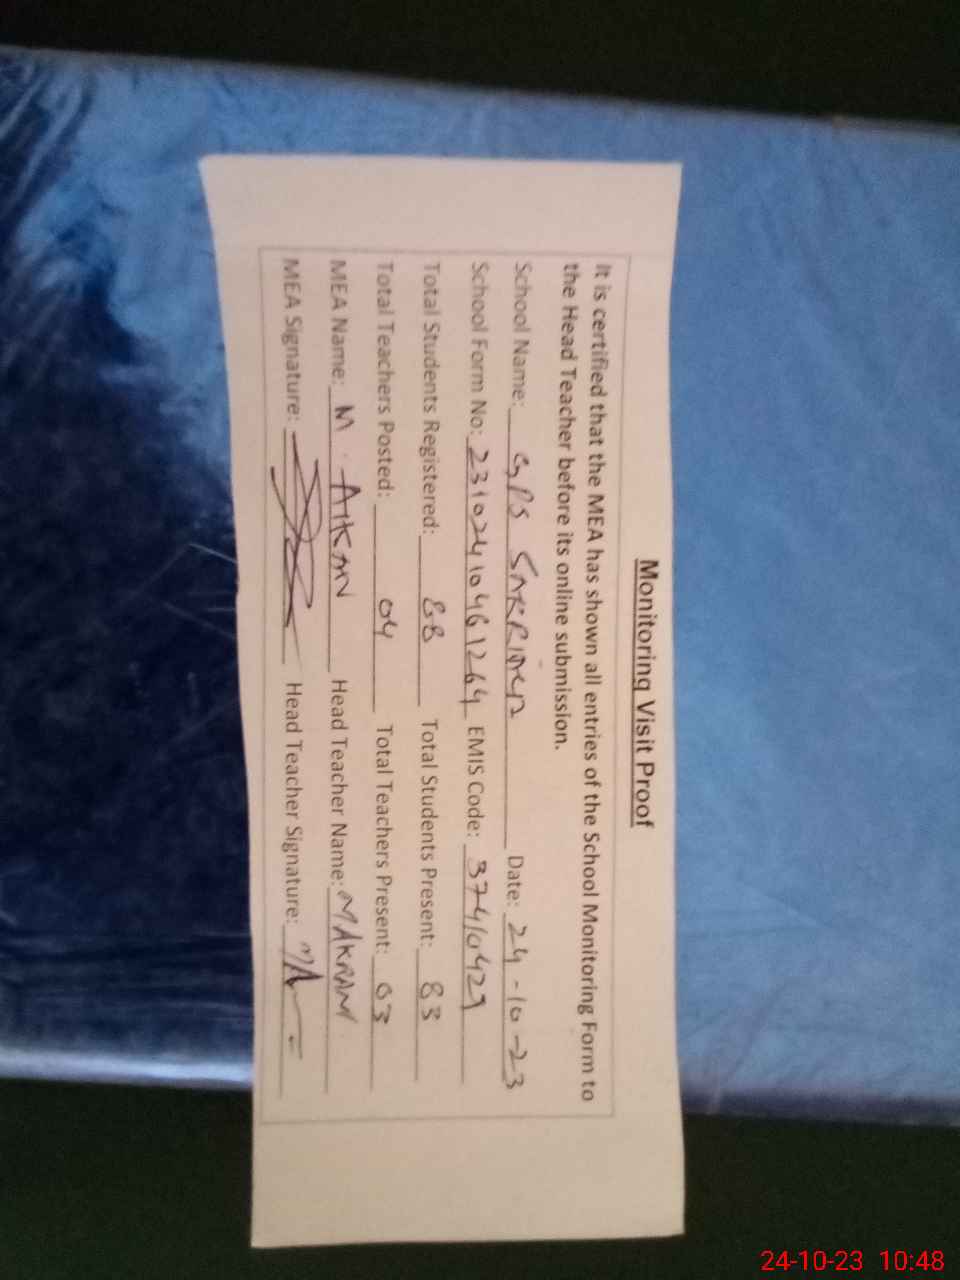 Monitoring Visit Proof
It is certified that the MEA has shown all entries of the School Monitoring Form to
the Head Teacher before its online submission.
School Name: GPS Date: 24-10-23
School Form No: 23102410461264 EMIS Code: 37410429
Total Students Registered: 88 Total Students Present: 83
Total Teachers Posted: 04 Total Teachers Present: 03
MEA Name: M. Head Teacher Name: MAKRAM
MEA Signature: Head Teacher Signature:
24-10-23 10:48